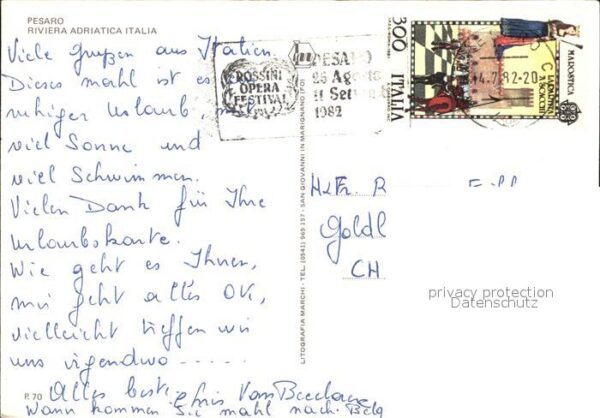 PESARO
RIVIERA ADRIATICA ITALIA
Viele grußen aus Italien.
Dieses mahl ist es
ruhiger Urlaub, mit
viel Sonne und
viel Schwimmen.
Vielen Dank für Ihre
Urlaubskarte.
Wie geht es Ihnen,
mir geht alles OK,
vielleicht treffen wir
uns irgendwo -----
Alles beste
Wann kommen Sie mahl nach Belg
P. 70
LITOGRAFIA MARCHI - TEL. (0541) 969 197 - SAN GIOVANNI IN MARIGNANO (FO)
ROSSINI
OPERA
FESTIVAL
PESARO
26 Agosto
11 Settem
1982
300
ITALIA
MAROSTICA
LA PARTITA
A SCACCHI
14.7.82-20
H+Fr. R
Goldl
CH
privacy protection
Datenschutz